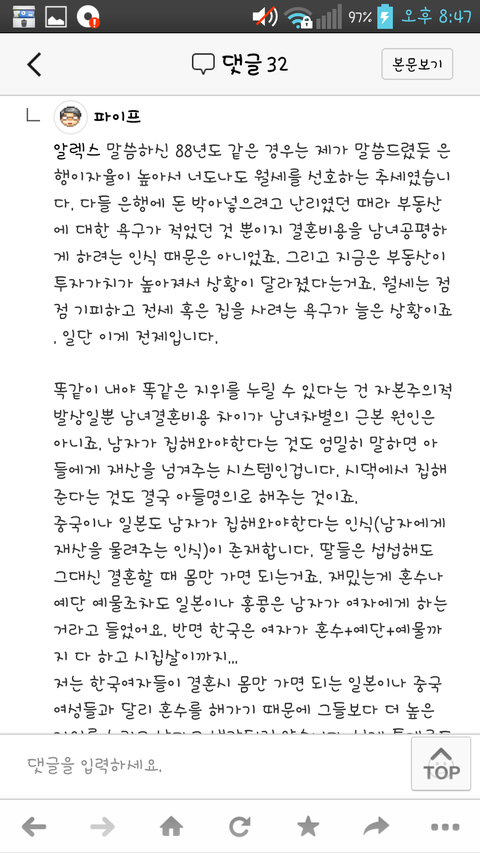 97% 오후 8:47
댓글 32
본문보기
파이프
알렉스 말씀하신 88년도 같은 경우는 제가 말씀드렸듯 은
행이자율이 높아서 너도나도 월세를 선호하는 추세였습니
다. 다들 은행에 돈 박아넣으려고 난리였던 때라 부동산
에 대한 욕구가 적었던 것 뿐이지 결혼비용을 남녀공평하
게 하려는 인식 때문은 아니었죠. 그리고 지금은 부동산이
투자가치가 높아져서 상황이 달라졌다는거죠. 월세는 점
점 기피하고 전세 혹은 집을 사려는 욕구가 늘은 상황이죠
. 일단 이게 전제입니다.
똑같이 내야 똑같은 지위를 누릴 수 있다는 건 자본주의적
발상일뿐 남녀결혼비용 차이가 남녀차별의 근본 원인은
아니죠. 남자가 집해와야한다는 것도 엄밀히 말하면 아
들에게 재산을 넘겨주는 시스템인겁니다. 시댁에서 집해
준다는 것도 결국 아들명의로 해주는 것이죠.
중국이나 일본도 남자가 집해와야한다는 인식(남자에게
재산을 물려주는 인식)이 존재합니다. 딸들은 섭섭해도
그대신 결혼할 때 몸만 가면 되는거죠. 재밌는게 혼수나
예단 예물조차도 일본이나 홍콩은 남자가 여자에게 하는
거라고 들었어요. 반면 한국은 여자가 혼수+예단+예물까
지 다 하고 시집살이까지...
저는 한국여자들이 결혼시 몸만 가면 되는 일본이나 중국
여성들과 달리 혼수를 해가기 때문에 그들보다 더 높은
댓글을 입력하세요.
TOP